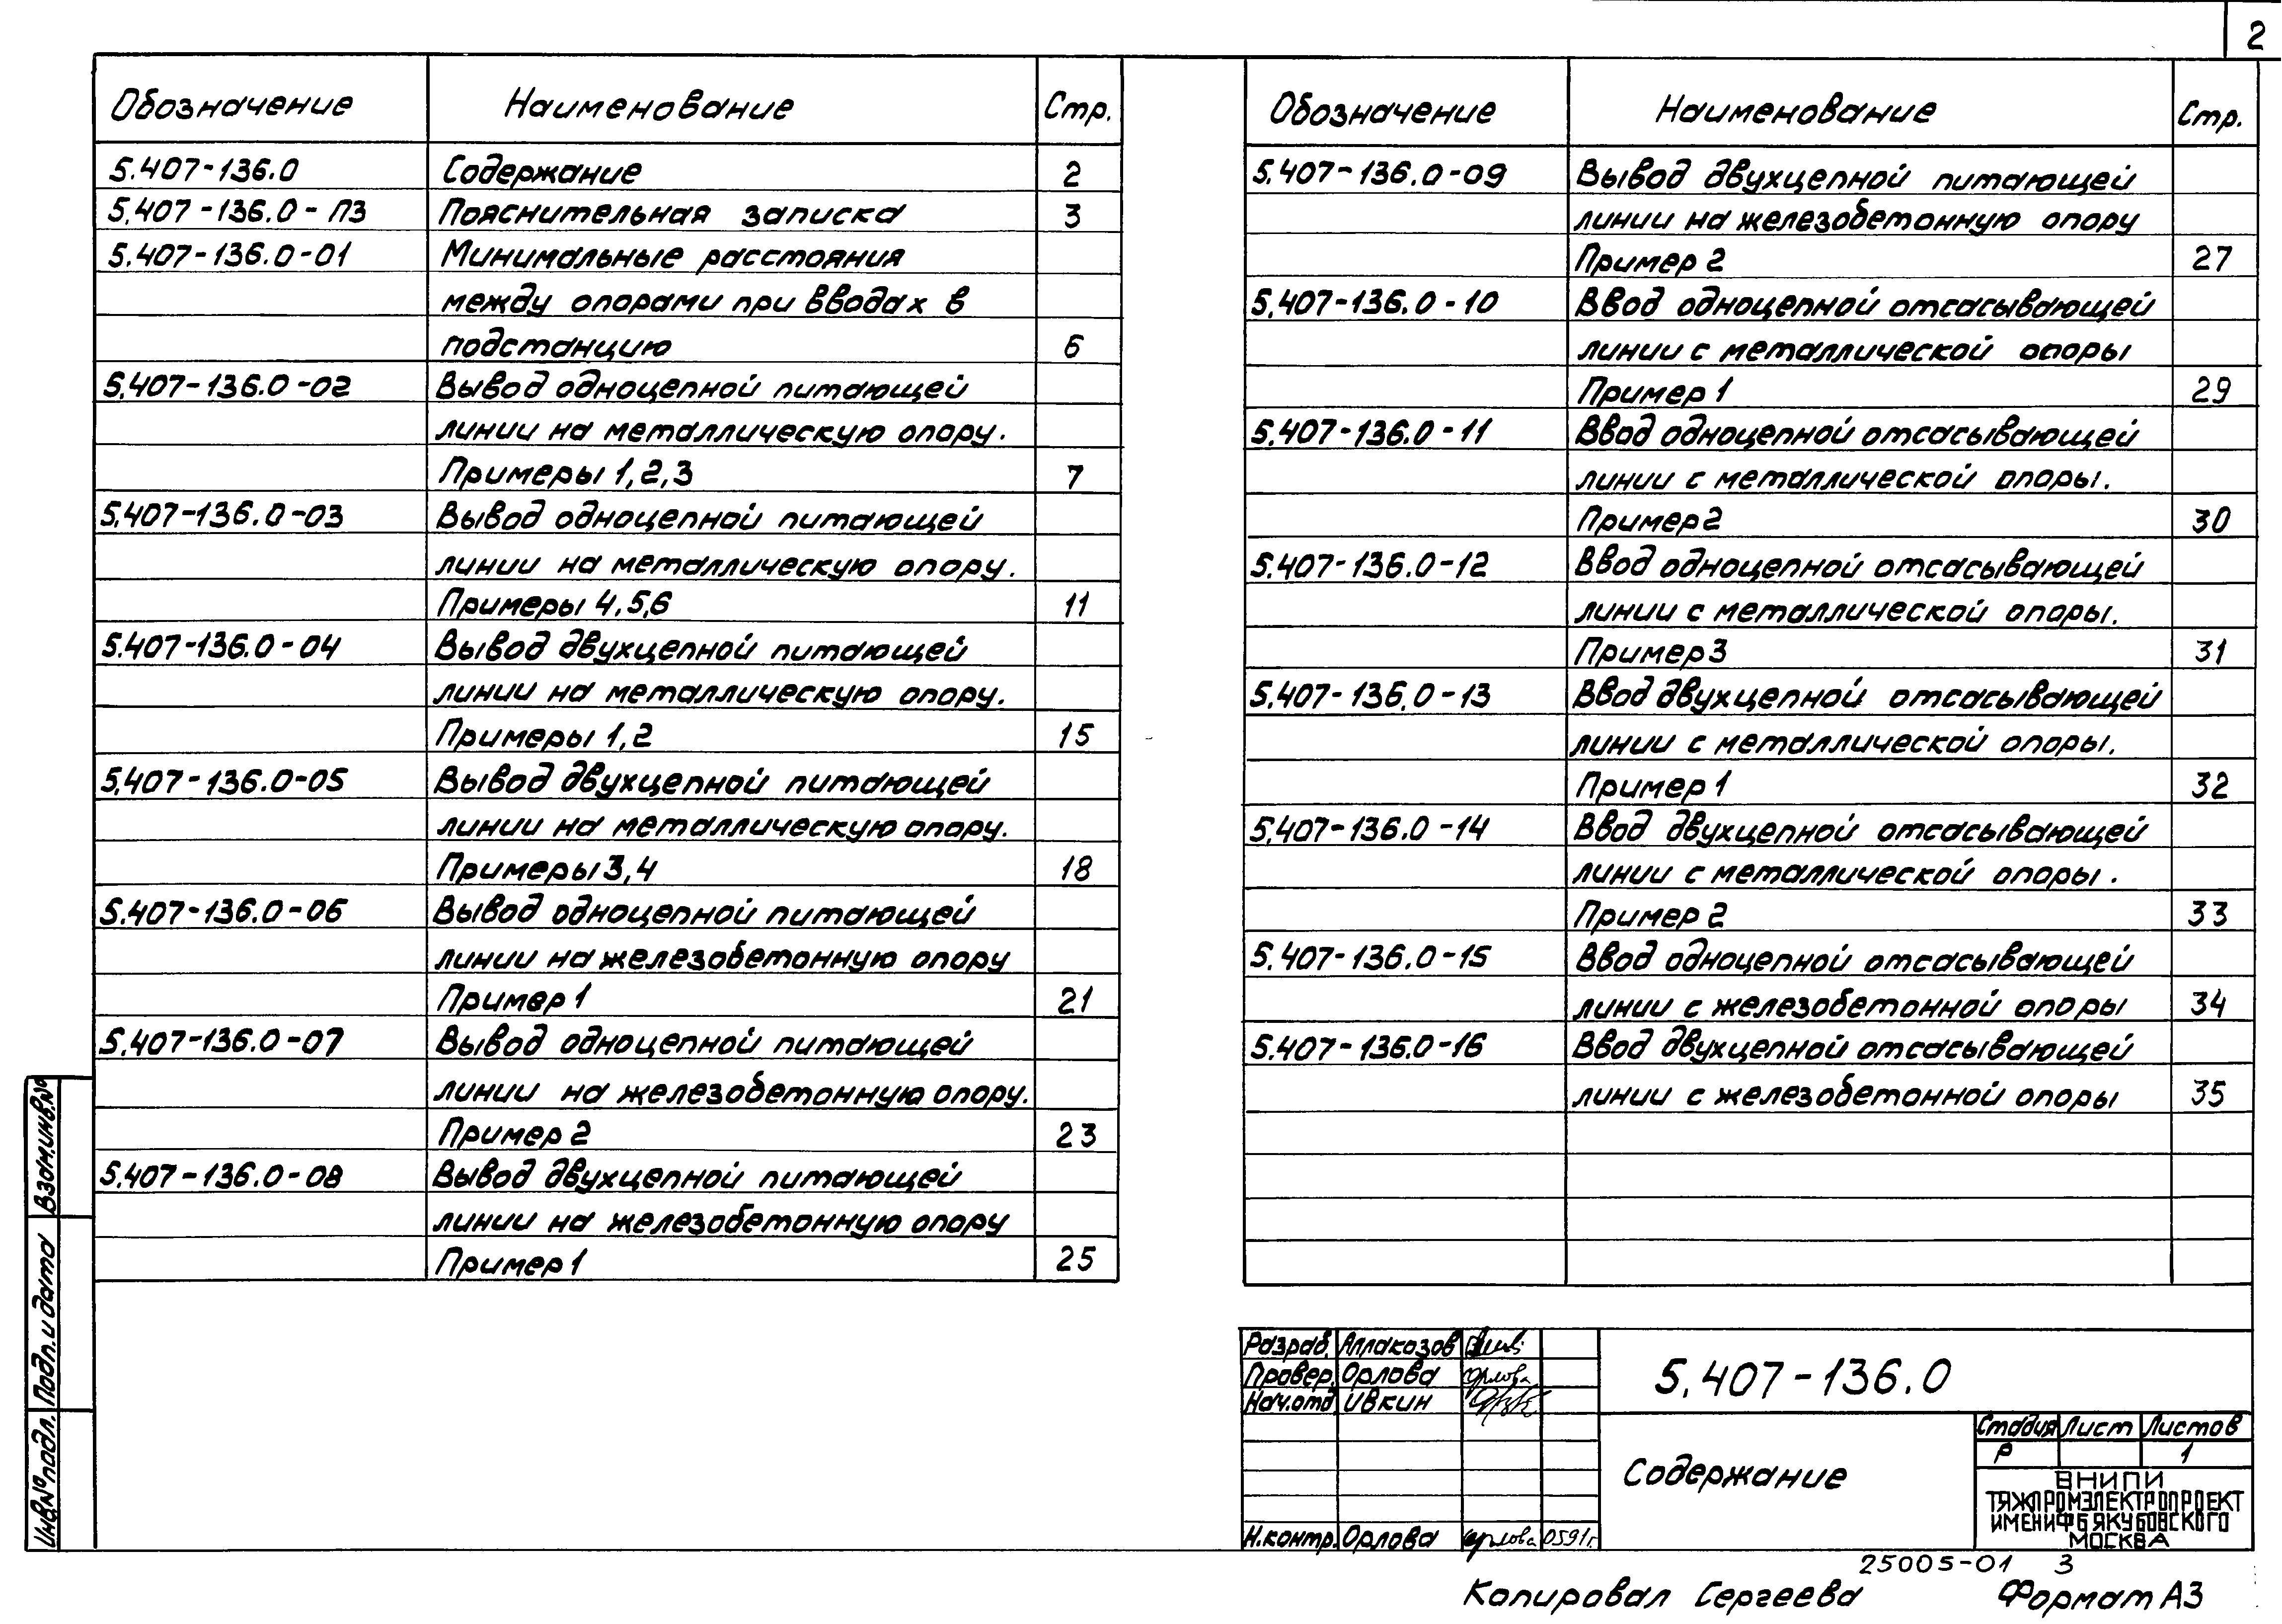 2
Обозначение Наименование Стр.
5.407-136.0 Содержание 2
5.407-136.0-ПЗ Пояснительная записка 3
5.407-136.0-01 Минимальные расстояния
между опорами при вводах в
подстанцию 6
5.407-136.0-02 Вывод одноцепной питающей
линии на металлическую опору.
Примеры 1,2,3 7
5.407-136.0-03 Вывод одноцепной питающей
линии на металлическую опору.
Примеры 4,5,6 11
5.407-136.0-04 Вывод двухцепной питающей
линии на металлическую опору.
Примеры 1,2 15
5.407-136.0-05 Вывод двухцепной питающей
линии на металлическую опору.
Примеры 3,4 18
5.407-136.0-06 Вывод одноцепной питающей
линии на железобетонную опору
Пример 1 21
5.407-136.0-07 Вывод одноцепной питающей
линии на железобетонную опору.
Пример 2 23
5.407-136.0-08 Вывод двухцепной питающей
линии на железобетонную опору
Пример 1 25
Обозначение Наименование Стр.
5.407-136.0-09 Вывод двухцепной питающей
линии на железобетонную опору
Пример 2 27
5.407-136.0-10 Ввод одноцепной отсасывающей
линии с металлической опоры
Пример 1 29
5.407-136.0-11 Ввод одноцепной отсасывающей
линии с металлической опоры.
Пример 2 30
5.407-136.0-12 Ввод одноцепной отсасывающей
линии с металлической опоры.
Пример 3 31
5.407-136.0-13 Ввод двухцепной отсасывающей
линии с металлической опоры.
Пример 1 32
5.407-136.0-14 Ввод двухцепной отсасывающей
линии с металлической опоры.
Пример 2 33
5.407-136.0-15 Ввод одноцепной отсасывающей
линии с железобетонной опоры 34
5.407-136.0-16 Ввод двухцепной отсасывающей
линии с железобетонной опоры 35
Взам.инв.№
Подп. и дата
Инв.№ подл.
Разраб. Аллакозов
Провер. Орлова Орлова
Нач.отд. Ивкин
Н.контр. Орлова Орлова 0591г.
5.407-136.0
Содержание
Стадия Лист Листов
Р 1
ВНИПИ
ТЯЖПРОМЭЛЕКТРОПРОЕКТ
ИМЕНИ Ф Б ЯКУБОВСКОГО
МОСКВА
25005-01 3
Копировал Сергеева Формат А3